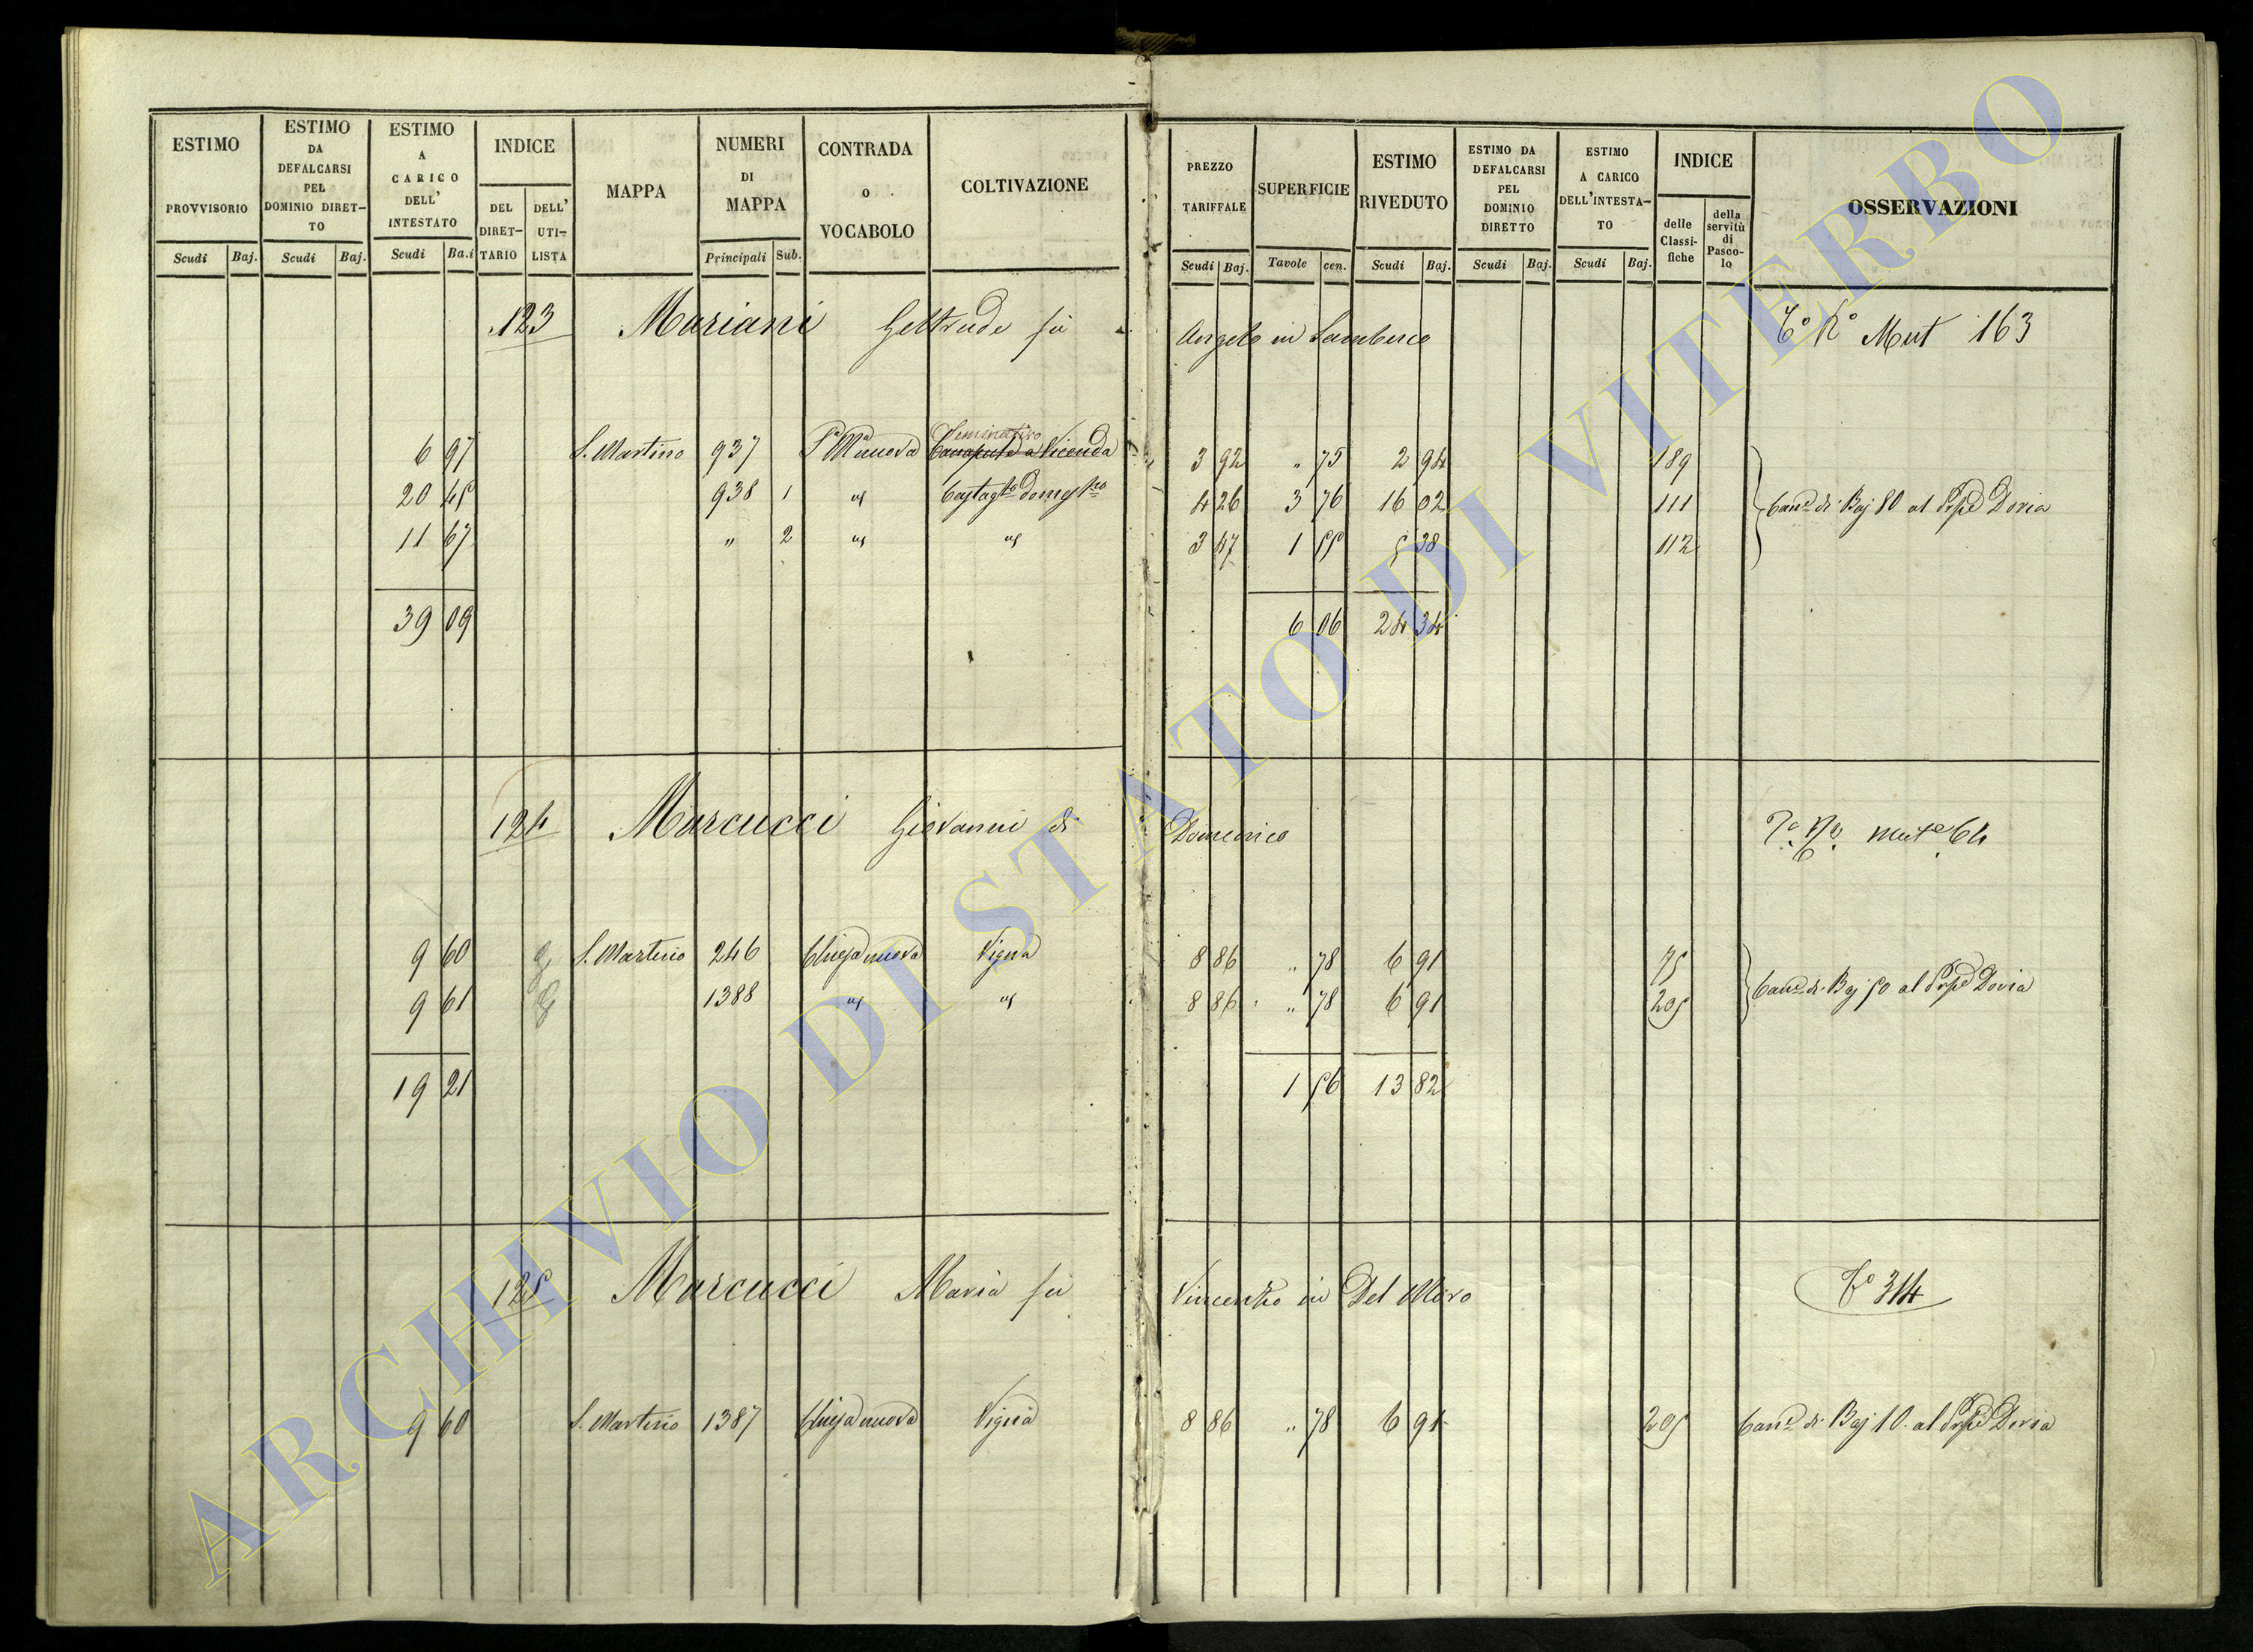 ESTIMO PROVVISORIO
ESTIMO DA DEFALCARSI PEL DOMINIO DIRET-TO
ESTIMO A CARICO DELL' INTESTATO
INDICE
DEL DIRET-TARIO
DELL' UTI-LISTA
MAPPA
NUMERI DI MAPPA
CONTRADA O VOCABOLO
COLTIVAZIONE
Scudi Baj. Scudi Baj. Scudi Ba.i Principali Sub.
PREZZO TARIFFALE
SUPERFICIE
ESTIMO RIVEDUTO
ESTIMO DA DEFALCARSI PEL DOMINIO DIRETTO
ESTIMO A CARICO DELL'INTESTA-TO
INDICE
delle Classi-fiche
della servitù di Pasco-lo
OSSERVAZIONI
Scudi Baj. Tavole cen. Scudi Baj. Scudi Baj. Scudi Baj.
123 Mariani Geltrude fu Angelo in Lamberco Mut 163
Seminativo
6 97 S. Martino 937 Sa Ma nuova Canapule a Vicenda 3 92 " 75 2 94 189
20 45 938 1 " Castagto Domesco 4 26 3 76 16 02 111 Cane di Baj 80 al Prpe Doria
11 67 " 2 " " 3 47 1 55 5 38 112
39 09 6 06 24 34
124 Marcucci Giovanni di Domenico mute 64
9 60 S. Martino 246 Chiesa nuova Vigna 8 86 " 78 6 91 75
9 61 1388 " " 8 86 " 78 6 91 205 Cane di Baj 50 al Prpe Doria
19 21 1 56 13 82
125 Marcucci Maria fu Vincenzo in Del Moro To 314
9 60 S. Martino 1387 Chiesa nuova Vigna 8 86 " 78 6 91 205 Cane di Baj 10. al Prpe Doria
ARCHIVIO DI STATO DI VITERBO